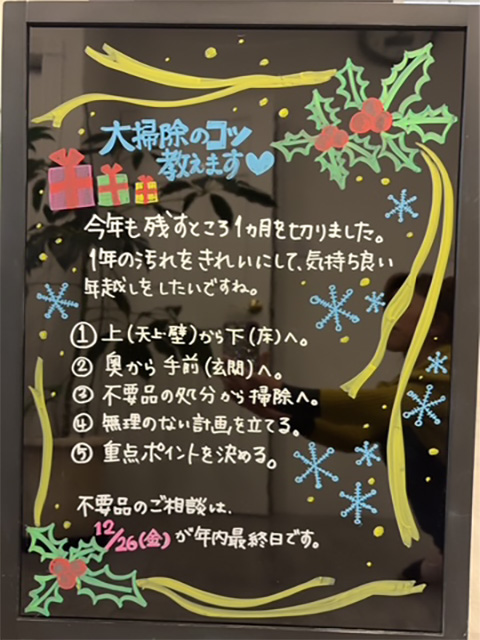 大掃除のコツ
教えます♡
今年も残すところ1ヵ月を切りました。
1年の汚れをきれいにして、気持ち良い
年越しをしたいですね。
① 上(天上・壁)から下(床)へ。
② 奥から手前(玄関)へ。
③ 不要品の処分から掃除へ。
④ 無理のない計画を立てる。
⑤ 重点ポイントを決める。
不要品のご相談は、
12/26(金)が年内最終日です。